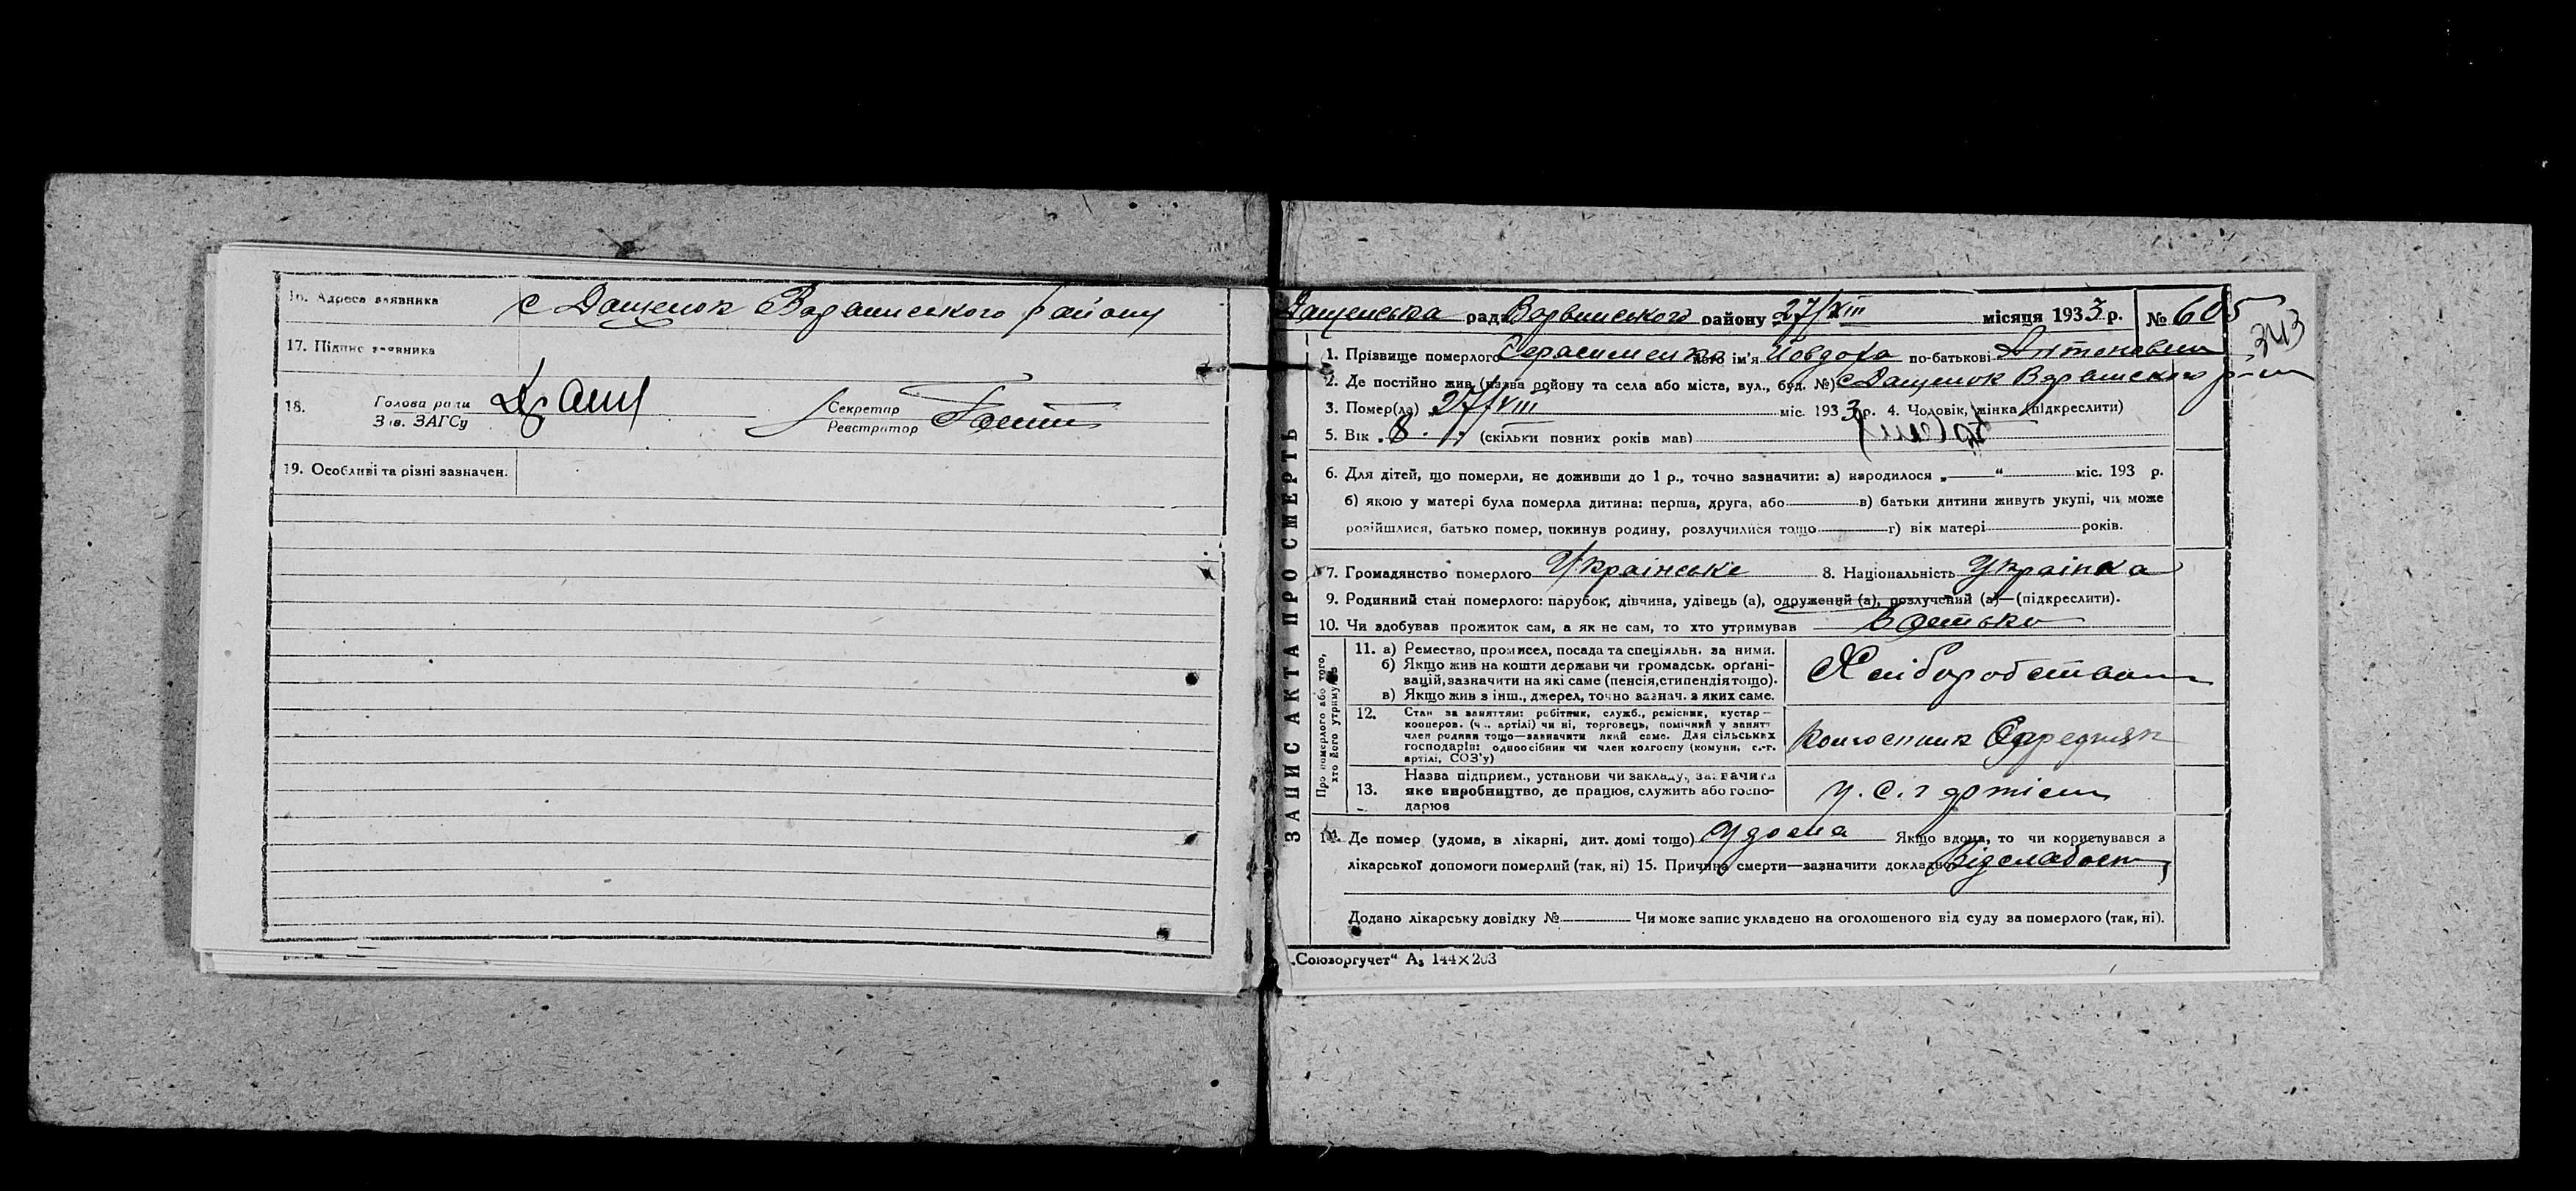 16. Адреса заявника с Дащенок Варвинського району
17. Підпис заявника
18. Голова ради
Зав. ЗАГСу
Секретар
Реєстратор
19. Особливі та різні зазначен.
ЗАПИС АКТА ПРО СМЕРТЬ
Дащенська рада Варвинського району 27/XIII місяця 1933 р. № 605
343
1. Прізвище померлого Герасименко його ім'я Йовдоха по-батькові Антоновна
2. Де постійно жив (назва району та села або міста, вул., буд. №) с Дащенок Варвинського р-ну
3. Помер(ла) 27/VIII міс. 1933 р. 4. Чоловік, жінка (підкреслити)
5. Вік 8 (скільки повних років мав)
6. Для дітей, що померли, не доживши до 1 р., точно зазначити: а) народилося „ “ міс. 193 р.
б) якою у матері була померла дитина: перша, друга, або в) батьки дитини живуть укупі, чи може
розійшлися, батько помер, покинув родину, розлучилися тощо г) вік матері років.
7. Громадянство померлого Українське 8. Національність Українка
9. Родинний стан померлого: парубок, дівчина, удівець (а), одружений (а), розлучений (а)—(підкреслити).
10. Чи здобував прожиток сам, а як не сам, то хто утримував батько
Про померлого або того, хто його утримував
11. а) Ремество, промисел, посада та спеціяльн. за ними.
б) Якщо жив на кошти держави чи громадськ. органі-
зацій, зазначити на які саме (пенсія, стипендія тощо).
в) Якщо жив з інш., джерел, точно зазнач. з яких саме.
Хліборобством
12. Стан за заняттям: робітник, служб., ремісник, кустар—
кооперов. (чл. артілі) чи ні, торговець, помічний у занятт
член родини тощо—зазначити який саме. Для сільських
господарів: одноосібник чи член колгоспу (комуни, с.-г.
артілі, СОЗ'у)
Колгоспник Середняк
13. Назва підприєм., установи чи закладу, зазначити
яке виробництво, де працює, служить або госпо-
дарює
у. с. г артіли
14. Де помер (удома, в лікарні, дит. домі тощо) Удома Якщо вдома, то чи користувався з
лікарської допомоги померлий (так, ні) 15. Причина смерти—зазначити докладно від слабости
Додано лікарську довідку № Чи може запис укладено на оголошеного від суду за померлого (так, ні).
„Союзоргучет“ А₅ 144×203